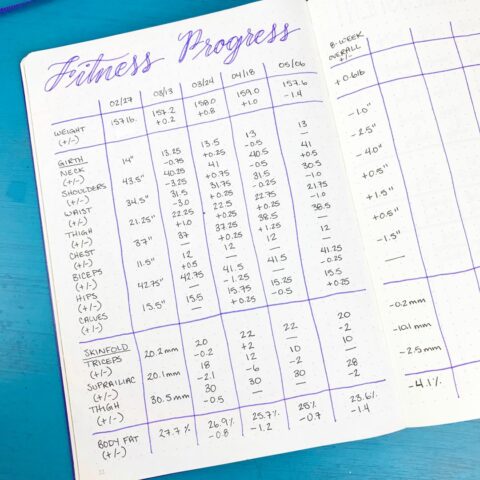 Fitness Progress
8-WEEK
OVERALL
+/-
02/27 03/13 03/24 04/18 05/06
WEIGHT 157lb. 157.2 158.0 159.0 157.6
(+/-) +0.2 +0.8 +1.0 -1.4 +0.6lb
GIRTH
NECK 14" 13.25 13.5 13 13
(+/-) -0.75 +0.25 -0.5 — -1.0"
SHOULDERS 43.5" 40.25 41 40.5 41
(+/-) -3.25 +0.75 -0.5 +0.5 -2.5"
WAIST 34.5" 31.5 31.75 31.5 30.5
(+/-) -3.0 +0.25 -0.25 -1.0 -4.0"
THIGH 21.25" 22.25 22.5 22.75 21.75
(+/-) +1.0 +0.25 +0.25 -1.0 +0.5"
CHEST 37" 37 37.25 38.5 38.5
(+/-) — +0.25 +1.25 — +1.5"
BICEPS 11.5" 12 12 12 12
(+/-) +0.5 — — — +0.5"
HIPS 42.75" 42.75 41.5 41.5 41.25
(+/-) — -1.25 — -0.25 -1.5"
CALVES 15.5" 15.5 15.75 15.25 15.5
(+/-) — +0.25 -0.5 +0.25 —
SKINFOLD
TRICEPS 20.2mm 20 22 22 20
(+/-) -0.2 +2 — -2 -0.2mm
SUPRAILIAC 20.1mm 18 12 10 10
(+/-) -2.1 -6 -2 — -10.1mm
THIGH 30.5mm 30 30 30 28
(+/-) -0.5 — — -2 -2.5mm
BODY FAT 27.7% 26.9% 25.7% 25% 23.6%
(+/-) -0.8 -1.2 -0.7 -1.4 -4.1%